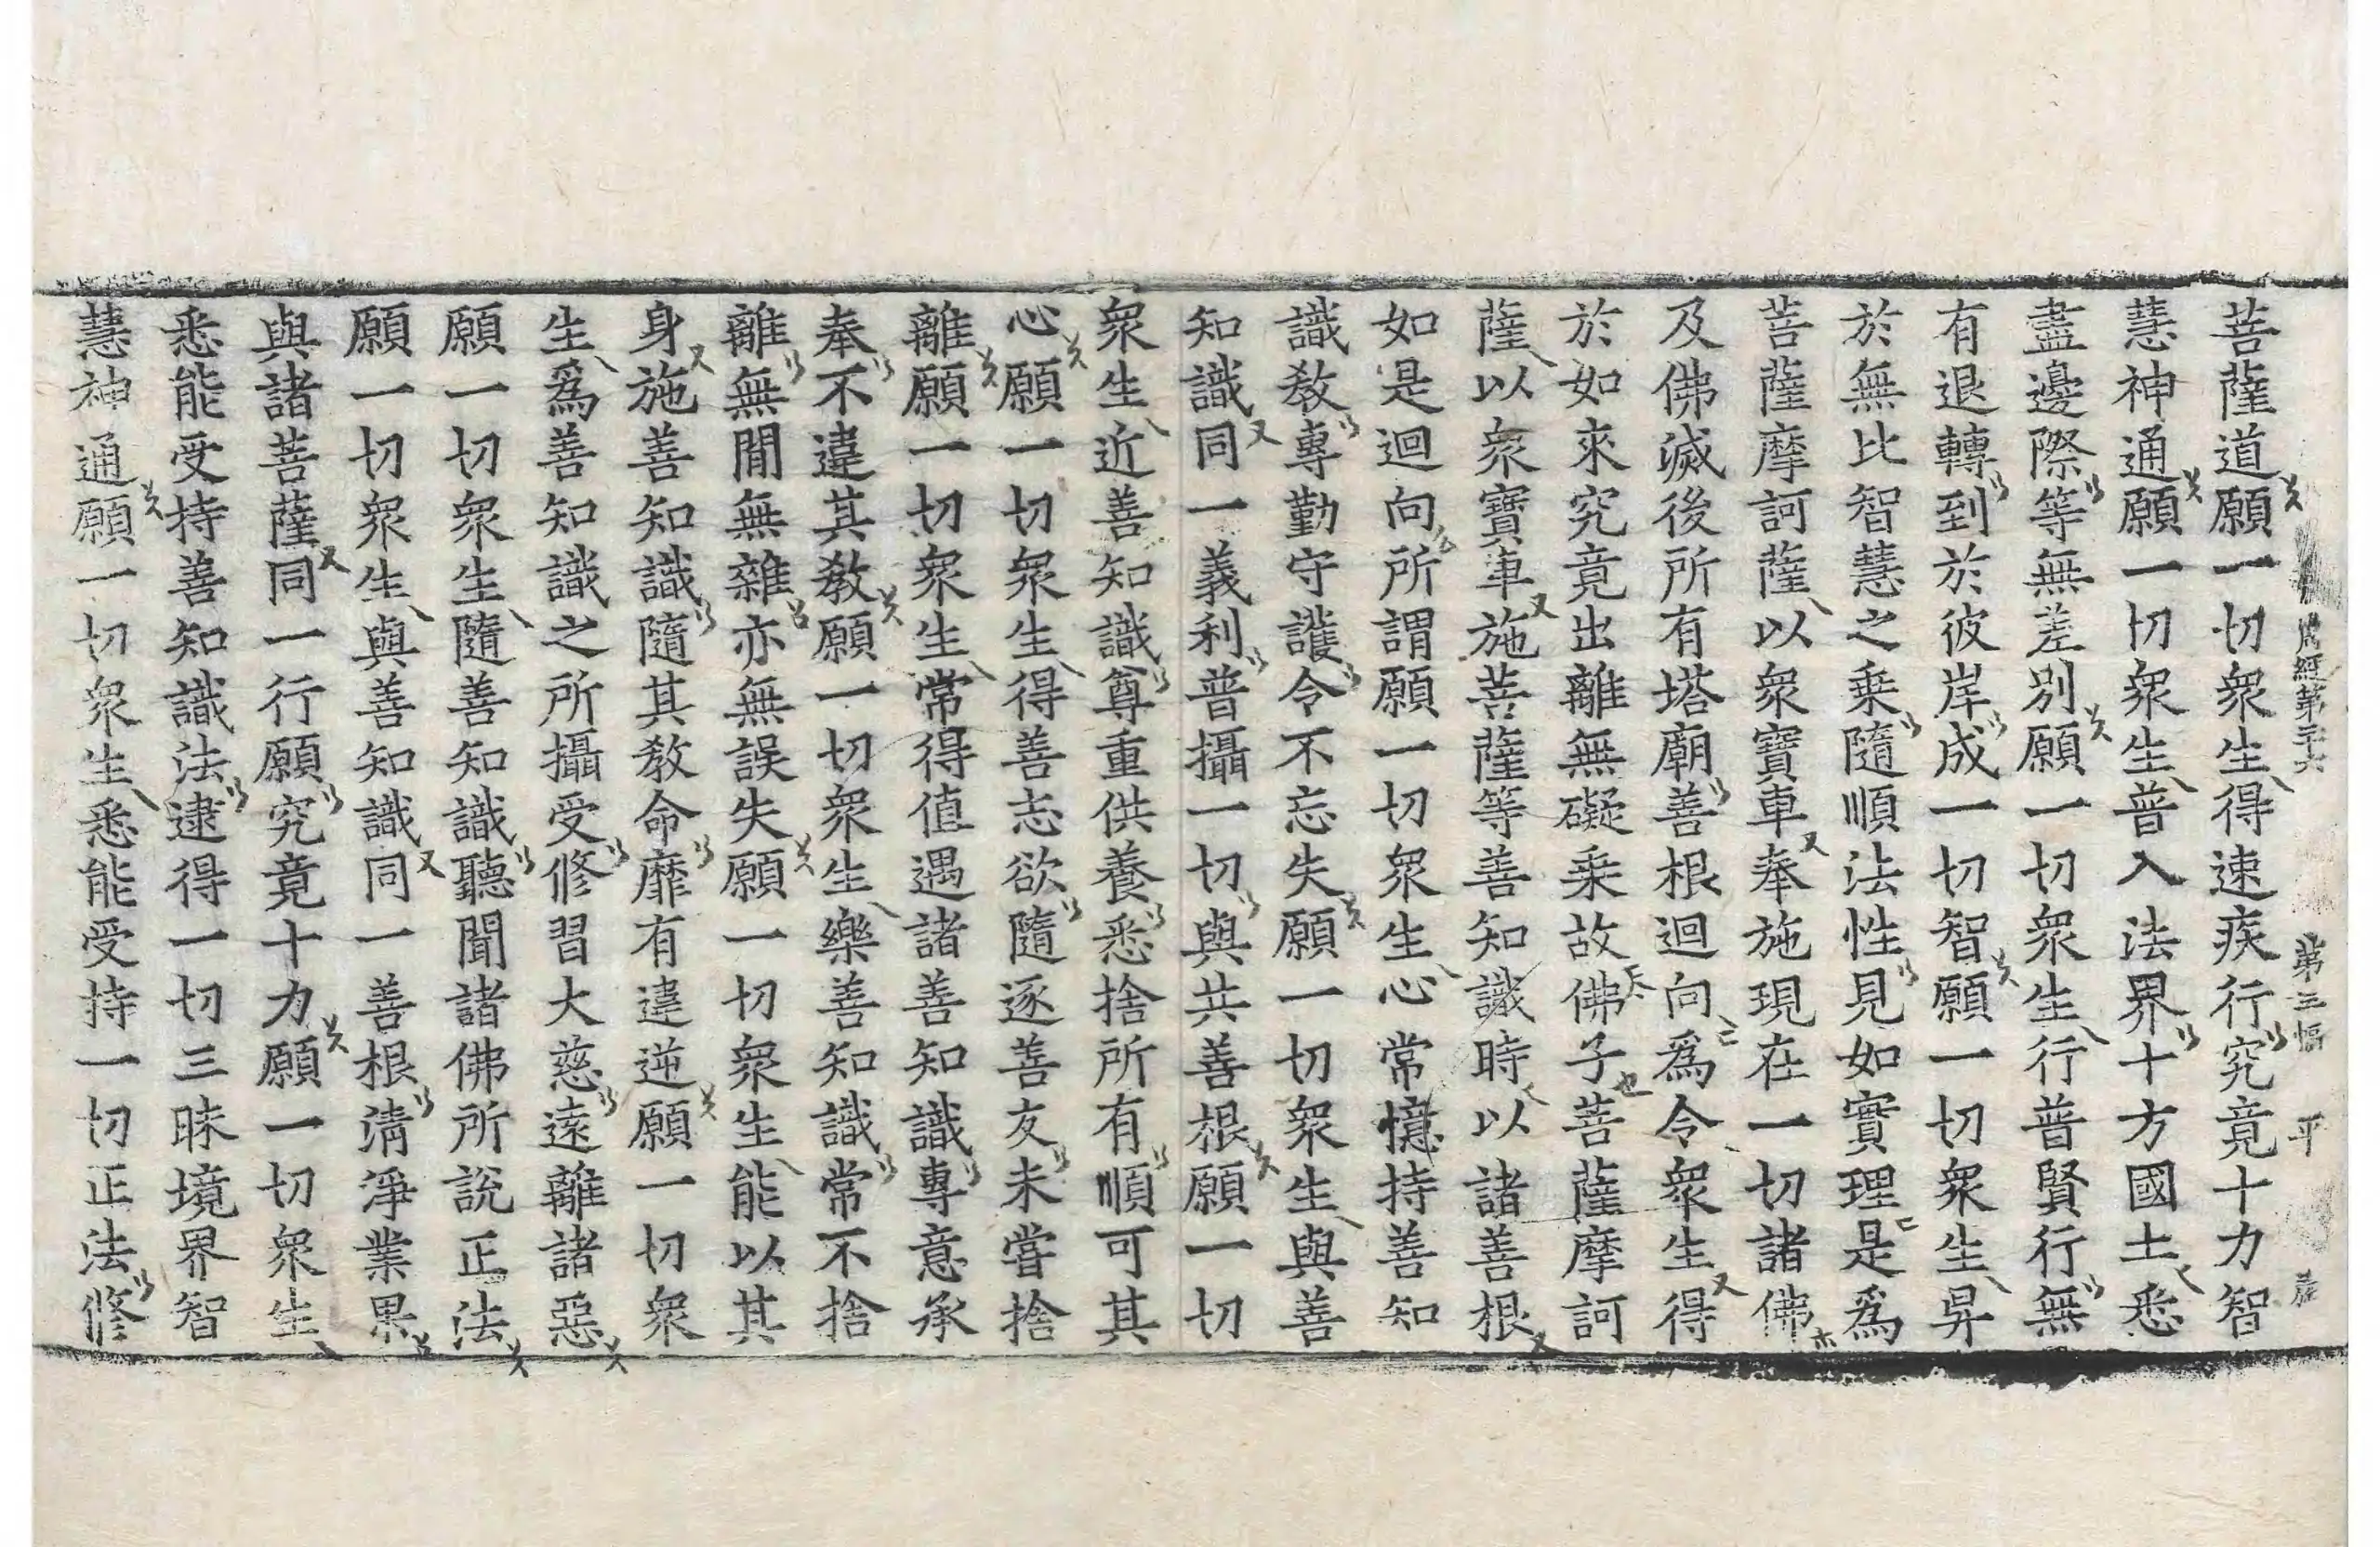 周經第二十六 第三幅 平
菩薩道願一切衆生得速疾行究竟十力智
慧神通願一切衆生普入法界十方國土悉
盡邊際等無差別願一切衆生行普賢行無
有退轉到於彼岸成一切智願一切衆生昇
於無比智慧之乗隨順法性見如實理是爲
菩薩摩訶薩以衆寶車奉施現在一切諸佛
及佛滅後所有塔廟善根迴向爲令衆生得
於如來究竟出離無礙乗故佛子菩薩摩訶
薩以衆寶車施菩薩等善知識時以諸善根
如是迴向所謂願一切衆生心常憶持善知
識教專勤守護令不忘失願一切衆生與善
知識同一義利普攝一切與共善根願一切
衆生近善知識尊重供養悉捨所有順可其
心願一切衆生得善志欲隨逐善友未嘗捨
離願一切衆生常得值遇諸善知識專意承
奉不違其教願一切衆生樂善知識常不捨
離無閒無雜亦無誤失願一切衆生能以其
身施善知識隨其教命靡有違逆願一切衆
生爲善知識之所攝受修習大慈遠離諸惡
願一切衆生隨善知識聽聞諸佛所說正法
願一切衆生與善知識同一善根淸淨業果
與諸菩薩同一行願究竟十力願一切衆生
悉能受持善知識法逮得一切三昧境界智
慧神通願一切衆生悉能受持一切正法修